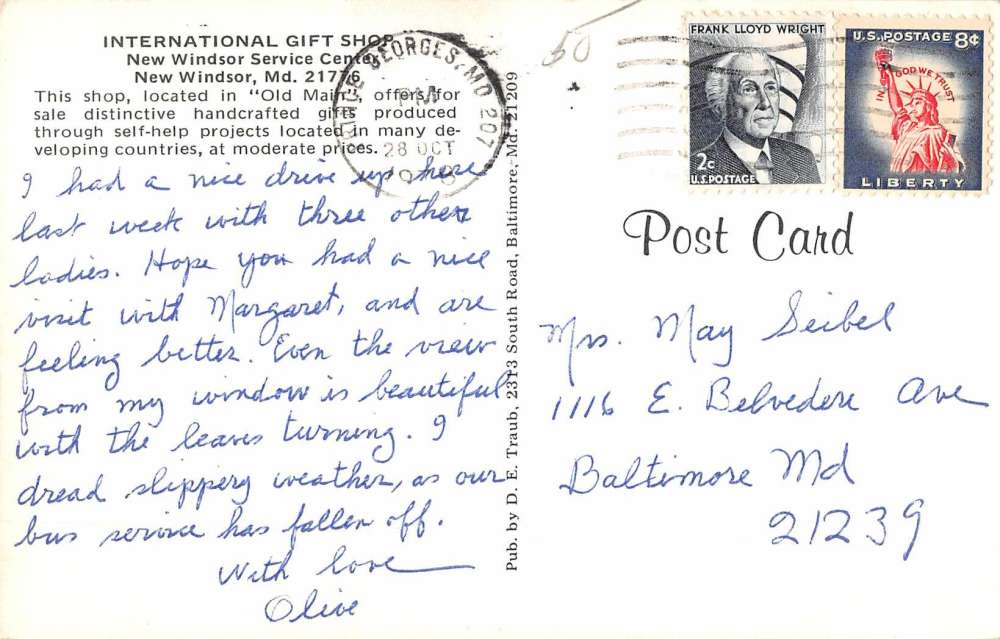 INTERNATIONAL GIFT SHOP
New Windsor Service Center
New Windsor, Md. 21776
This shop, located in "Old Main," offers for
sale distinctive handcrafted gifts produced
through self-help projects located in many de-
veloping countries, at moderate prices.
I had a nice drive up here
last week with three other
ladies. Hope you had a nice
visit with Margaret, and are
feeling better. Even the view
from my window is beautiful
with the leaves turning. I
dread slippery weather, as our
bus service has fallen off.
With love
Olive
Pub. by D. E. Traub, 2313 South Road, Baltimore, Md. 21209
GEORGES, MD 207
PM
28 OCT
50
FRANK LLOYD WRIGHT
2c
U.S. POSTAGE
U.S. POSTAGE 8¢
IN GOD WE TRUST
LIBERTY
Post Card
Mrs. May Seibel
1116 E. Belvedere Ave
Baltimore Md
21239